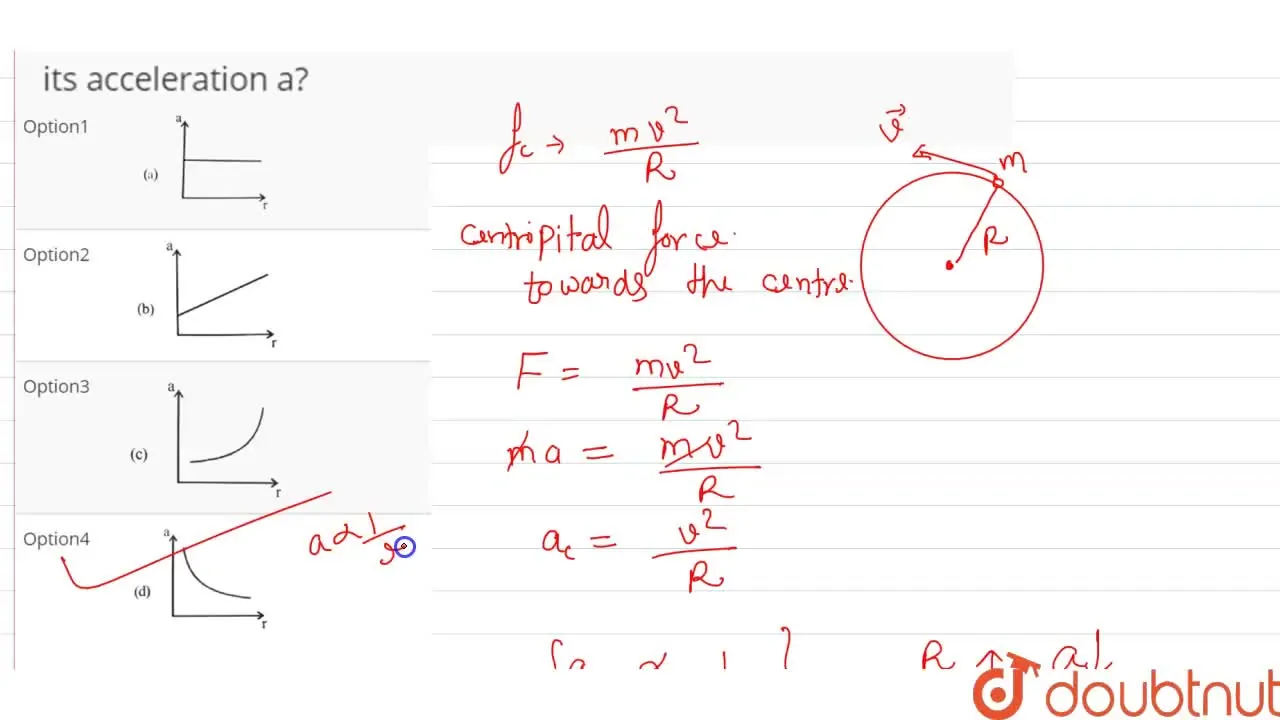 its acceleration a?
Option1
a
(a)
r
Option2
a
(b)
r
Option3
a
(c)
r
Option4
a
(d)
r
a ∝ 1/r
f_c → mv²/R
centripital force
towards the centre.
v⃗
m
R
F = mv²/R
ma = mv²/R
a_c = v²/R
R ↑
doubtnut